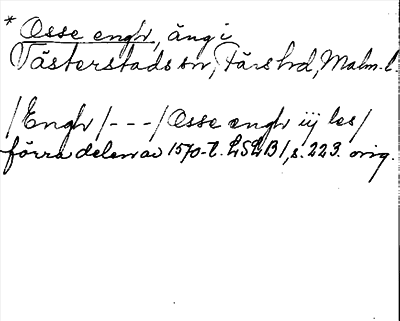 * Osse engh, äng i
Västerstads sn, Färs hd, Malm. l.
/Engh/---/Osse engh iij les/
förra delen av 1570-t. LSLB1, s. 223. orig.